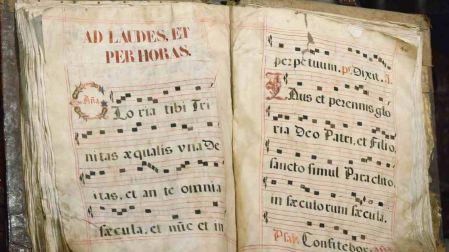 AD LAUDES, ET
PER HORAS.
Aña
GLoria tibi Tri
nitas æqualis vna De
itas, et an te omnia
sæcula, et nūc et in
perpetuum. ps. Dixit.
Laus et perennis glo
ria Deo Patri, et Filio,
sancto simul Paraclito,
in sæculorum sæcula.
Psal. Confitebor